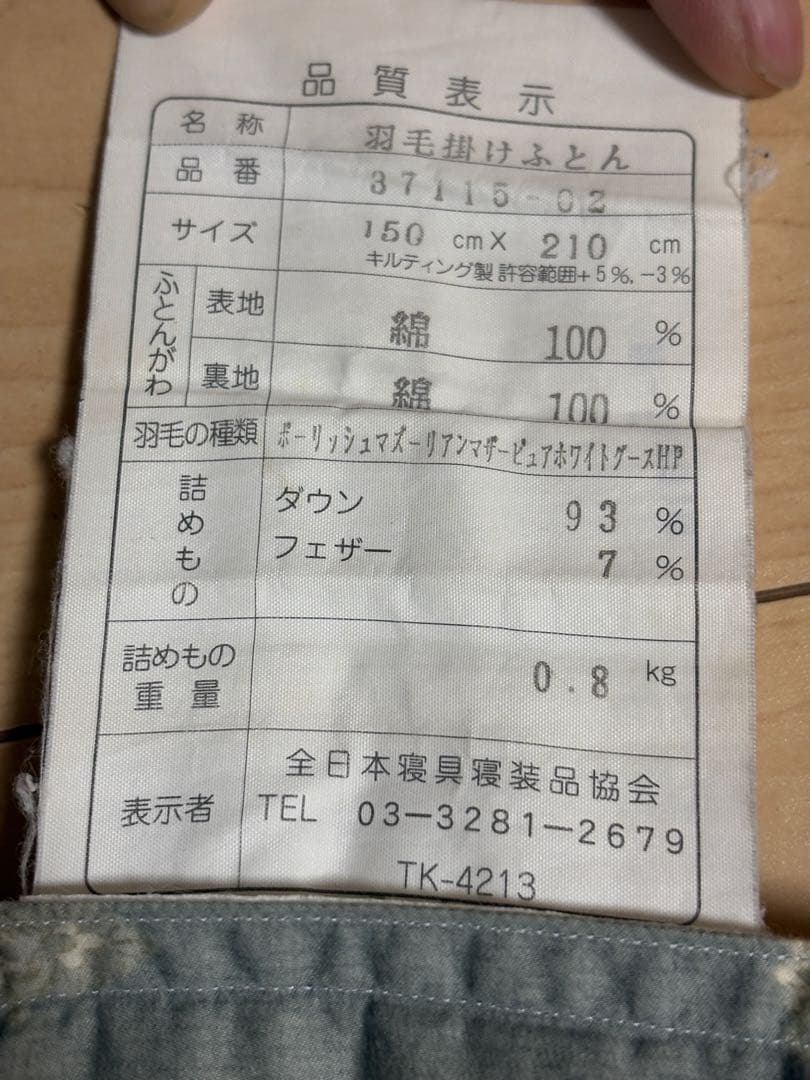 品質表示
名称 羽毛掛けふとん
品番 37115-02
サイズ 150 cm X 210 cm
キルティング製 許容範囲+5%,-3%
ふとんがわ
表地 綿 100 %
裏地 綿 100 %
羽毛の種類 ポーリッシュマズーリアンマザーピュアホワイトグースHP
詰めもの
ダウン 93 %
フェザー 7 %
詰めもの重量 0.8 kg
表示者
全日本寝具寝装品協会
TEL 03-3281-2679
TK-4213